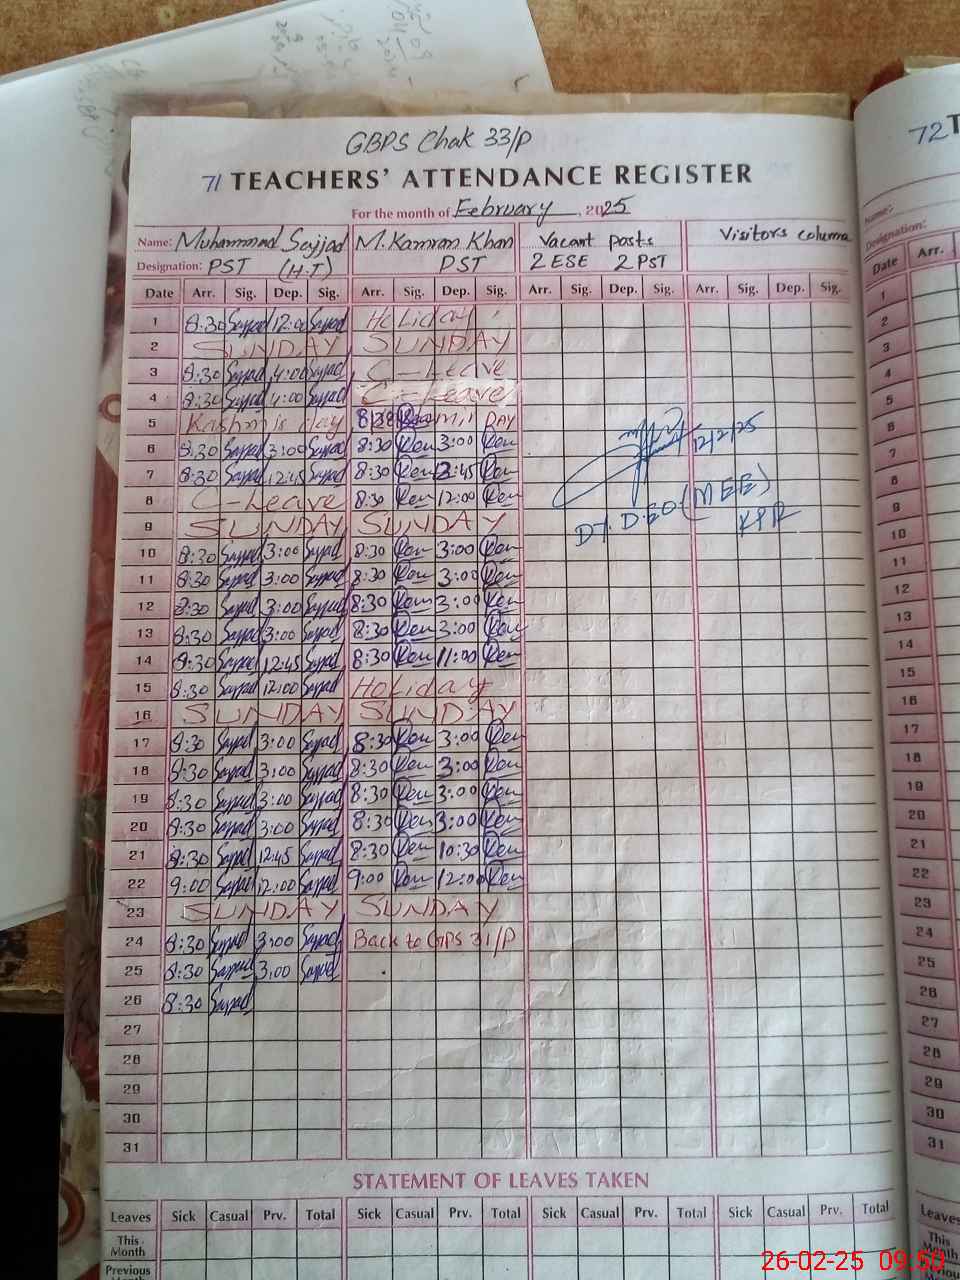 GBPS Chak 33/P
71 TEACHERS' ATTENDANCE REGISTER
For the month of February, 2025
Name: Muhammad Sajjad M. Kamran Khan Vacant posts Visitors column
Designation: PST (H.T) PST 2 ESE 2 PST
Date Arr. Sig. Dep. Sig. Arr. Sig. Dep. Sig. Arr. Sig. Dep. Sig. Arr. Sig. Dep. Sig.
1 8:30 Sajjad 12:00 Sajjad Holiday
2 SUNDAY SUNDAY
3 8:30 Sajjad 4:00 Sajjad C-Leave
4 8:30 Sajjad 4:00 Sajjad C-Leave
5 Kashmis day DAY
6 8:30 Sajjad 3:00 Sajjad 8:30 3:00
12/2/25
7 8:30 Sajjad 12:45 Sajjad 8:30
8 C-Leave 8:30 12:00
DY. D.EO (MEE)
9 SUNDAY SUNDAY
KPR
10 8:30 Sajjad 3:00 Sajjad 8:30 3:00
11 8:30 Sajjad 3:00 Sajjad 8:30 3:00
12 8:30 Sajjad 3:00 Sajjad 8:30 3:00
13 8:30 Sajjad 3:00 Sajjad 8:30 3:00
14 8:30 Sajjad 12:45 Sajjad 8:30 11:00
15 8:30 Sajjad 12:00 Sajjad Holiday
16 SUNDAY SUNDAY
17 8:30 Sajjad 3:00 Sajjad 8:30 3:00
18 8:30 Sajjad 3:00 Sajjad 8:30 3:00
19 8:30 Sajjad 3:00 Sajjad 8:30 3:00
20 8:30 Sajjad 3:00 Sajjad 8:30 3:00
21 8:30 Sajjad 12:45 Sajjad 8:30 10:30
22 9:00 Sajjad 12:00 Sajjad 9:00 12:00
23 SUNDAY SUNDAY
24 8:30 Sajjad 3:00 Sajjad Back to GPS 31/P
25 8:30 Sajjad 3:00 Sajjad
26 8:30 Sajjad
27
28
29
30
31
STATEMENT OF LEAVES TAKEN
Leaves Sick Casual Prv. Total Sick Casual Prv. Total Sick Casual Prv. Total Sick Casual Prv. Total
This Month
Previous
72
Name:
Designation:
Date Arr.
1
2
3
4
5
6
7
8
9
10
11
12
13
14
15
16
17
18
19
20
21
22
23
24
25
26
27
28
29
30
31
Leaves
This Month
26-02-25 09:50